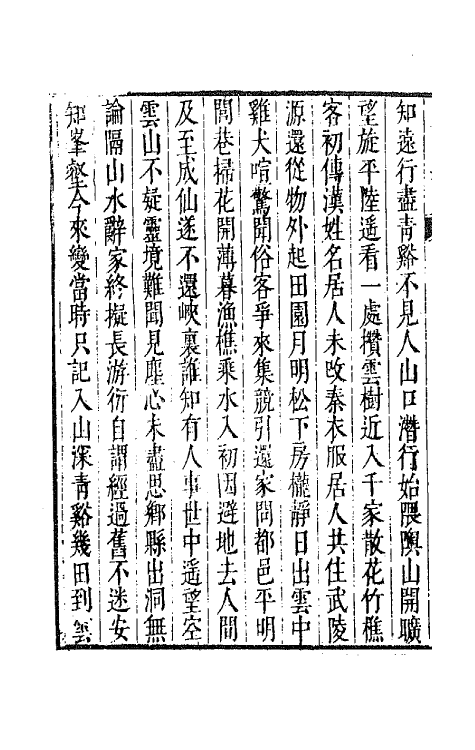 知遠行盡青谿不見人山口潛行始隈隩山開曠
望旋平陸遥看一處攢雲樹近入千家散花竹樵
客初傳漢姓名居人未改秦衣服居人共住武陵
源還從物外起田園月明松下房櫳靜日出雲中
雞犬喧驚聞俗客爭來集競引還家問都邑平明
閭巷掃花開薄暮漁樵乘水入初因避地去人間
及至成仙遂不還峽裏誰知有人事世中遥望空
雲山不疑靈境難聞見塵心未盡思鄉縣出洞無
論隔山水辭家終擬長游衍自謂經過舊不迷安
知峯壑今來變當時只記入山深青谿幾曲到雲